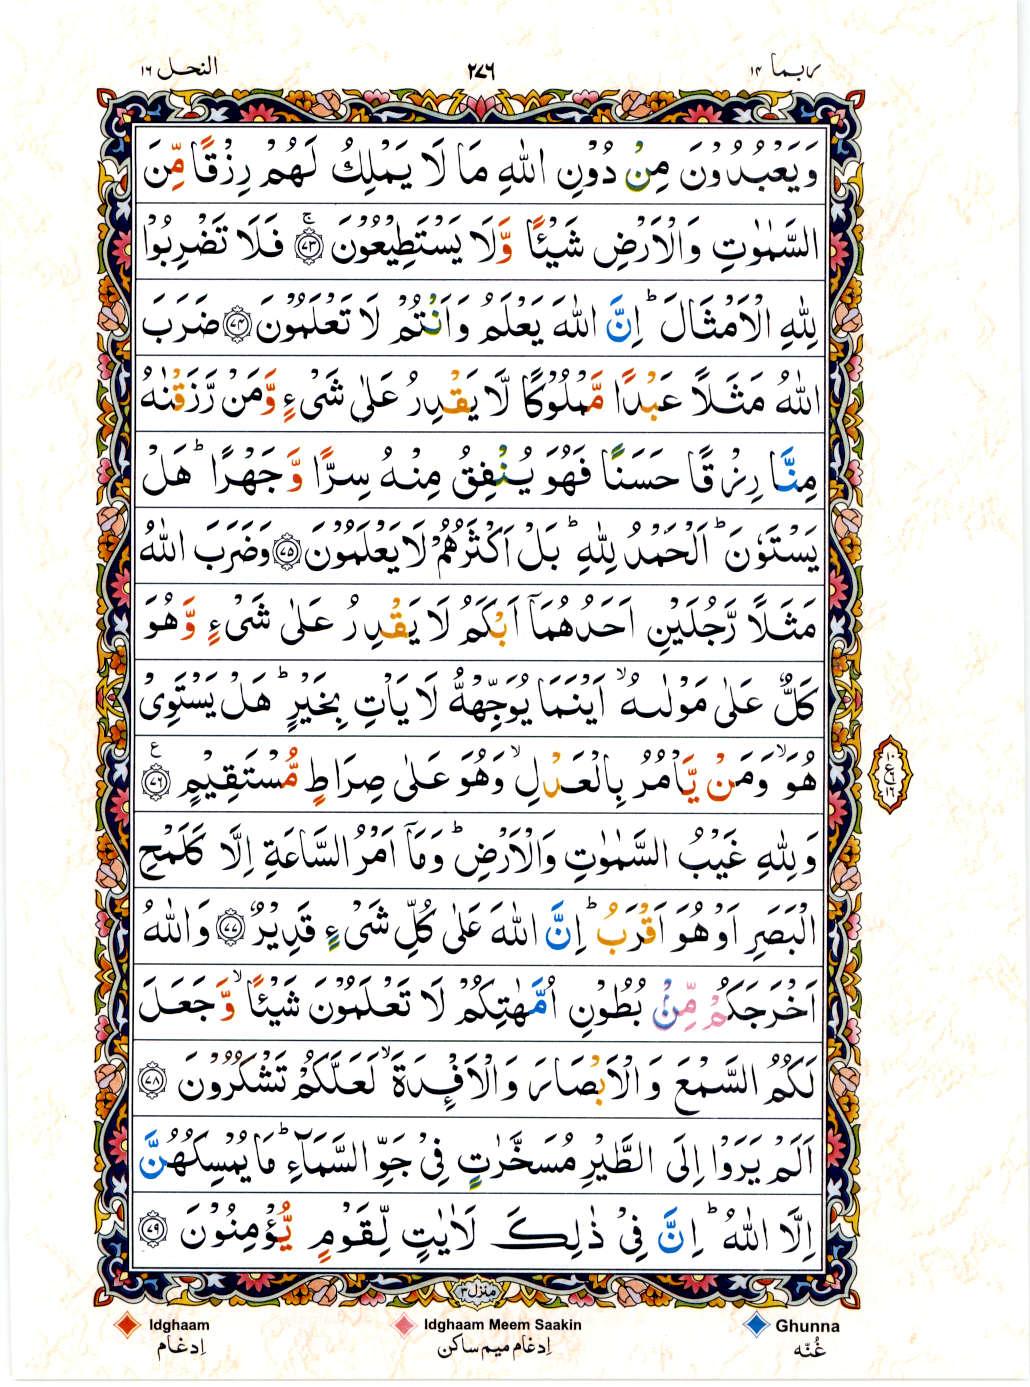 ربما ١٤
٢٧٦
النحل ١٦
وَيَعْبُدُوْنَ مِنْ دُوْنِ اللّٰهِ مَا لَا يَمْلِكُ لَهُمْ رِزْقًا مِّنَ
السَّمٰوٰتِ وَالْاَرْضِ شَيْـًٔا وَّلَا يَسْتَطِيْعُوْنَ ۚ﴿۷۳﴾ فَلَا تَضْرِبُوْا
لِلّٰهِ الْاَمْثَالَ ؕ اِنَّ اللّٰهَ يَعْلَمُ وَاَنْتُمْ لَا تَعْلَمُوْنَ ﴿۷۴﴾ ضَرَبَ
اللّٰهُ مَثَلًا عَبْدًا مَّمْلُوْكًا لَّا يَقْدِرُ عَلٰى شَىْءٍ وَّمَنْ رَّزَقْنٰهُ
مِنَّا رِزْقًا حَسَنًا فَهُوَ يُنْفِقُ مِنْهُ سِرًّا وَّجَهْرًا ؕ هَلْ
يَسْتَوٗنَ ؕ اَلْحَمْدُ لِلّٰهِ ؕ بَلْ اَكْثَرُهُمْ لَا يَعْلَمُوْنَ ﴿۷۵﴾ وَضَرَبَ اللّٰهُ
مَثَلًا رَّجُلَيْنِ اَحَدُهُمَاۤ اَبْكَمُ لَا يَقْدِرُ عَلٰى شَىْءٍ وَّهُوَ
كَلٌّ عَلٰى مَوْلٰٮهُ ۙ اَيْنَمَا يُوَجِّهْهُّ لَا يَاْتِ بِخَيْرٍ ؕ هَلْ يَسْتَوِىْ
هُوَ ۙ وَمَنْ يَّاْمُرُ بِالْعَدْلِ ۙ وَهُوَ عَلٰى صِرَاطٍ مُّسْتَقِيْمٍ ﴿۷۶﴾ ع
وَلِلّٰهِ غَيْبُ السَّمٰوٰتِ وَالْاَرْضِ ؕ وَمَاۤ اَمْرُ السَّاعَةِ اِلَّا كَلَمْحِ
الْبَصَرِ اَوْ هُوَ اَقْرَبُ ؕ اِنَّ اللّٰهَ عَلٰى كُلِّ شَىْءٍ قَدِيْرٌ ﴿۷۷﴾ وَاللّٰهُ
اَخْرَجَكُمْ مِّنْ بُطُوْنِ اُمَّهٰتِكُمْ لَا تَعْلَمُوْنَ شَيْـًٔا ۙ وَّجَعَلَ
لَكُمُ السَّمْعَ وَالْاَبْصَارَ وَالْاَفْـِٕدَةَ ۙ لَعَلَّكُمْ تَشْكُرُوْنَ ﴿۷۸﴾
اَلَمْ يَرَوْا اِلَى الطَّيْرِ مُسَخَّرٰتٍ فِىْ جَوِّ السَّمَآءِ ؕ مَا يُمْسِكُهُنَّ
اِلَّا اللّٰهُ ؕ اِنَّ فِىْ ذٰلِكَ لَاٰيٰتٍ لِّقَوْمٍ يُّؤْمِنُوْنَ ﴿۷۹﴾
منزل ٣
Idghaam
اِدغام
Idghaam Meem Saakin
اِدغام میم ساکن
Ghunna
غُنّه